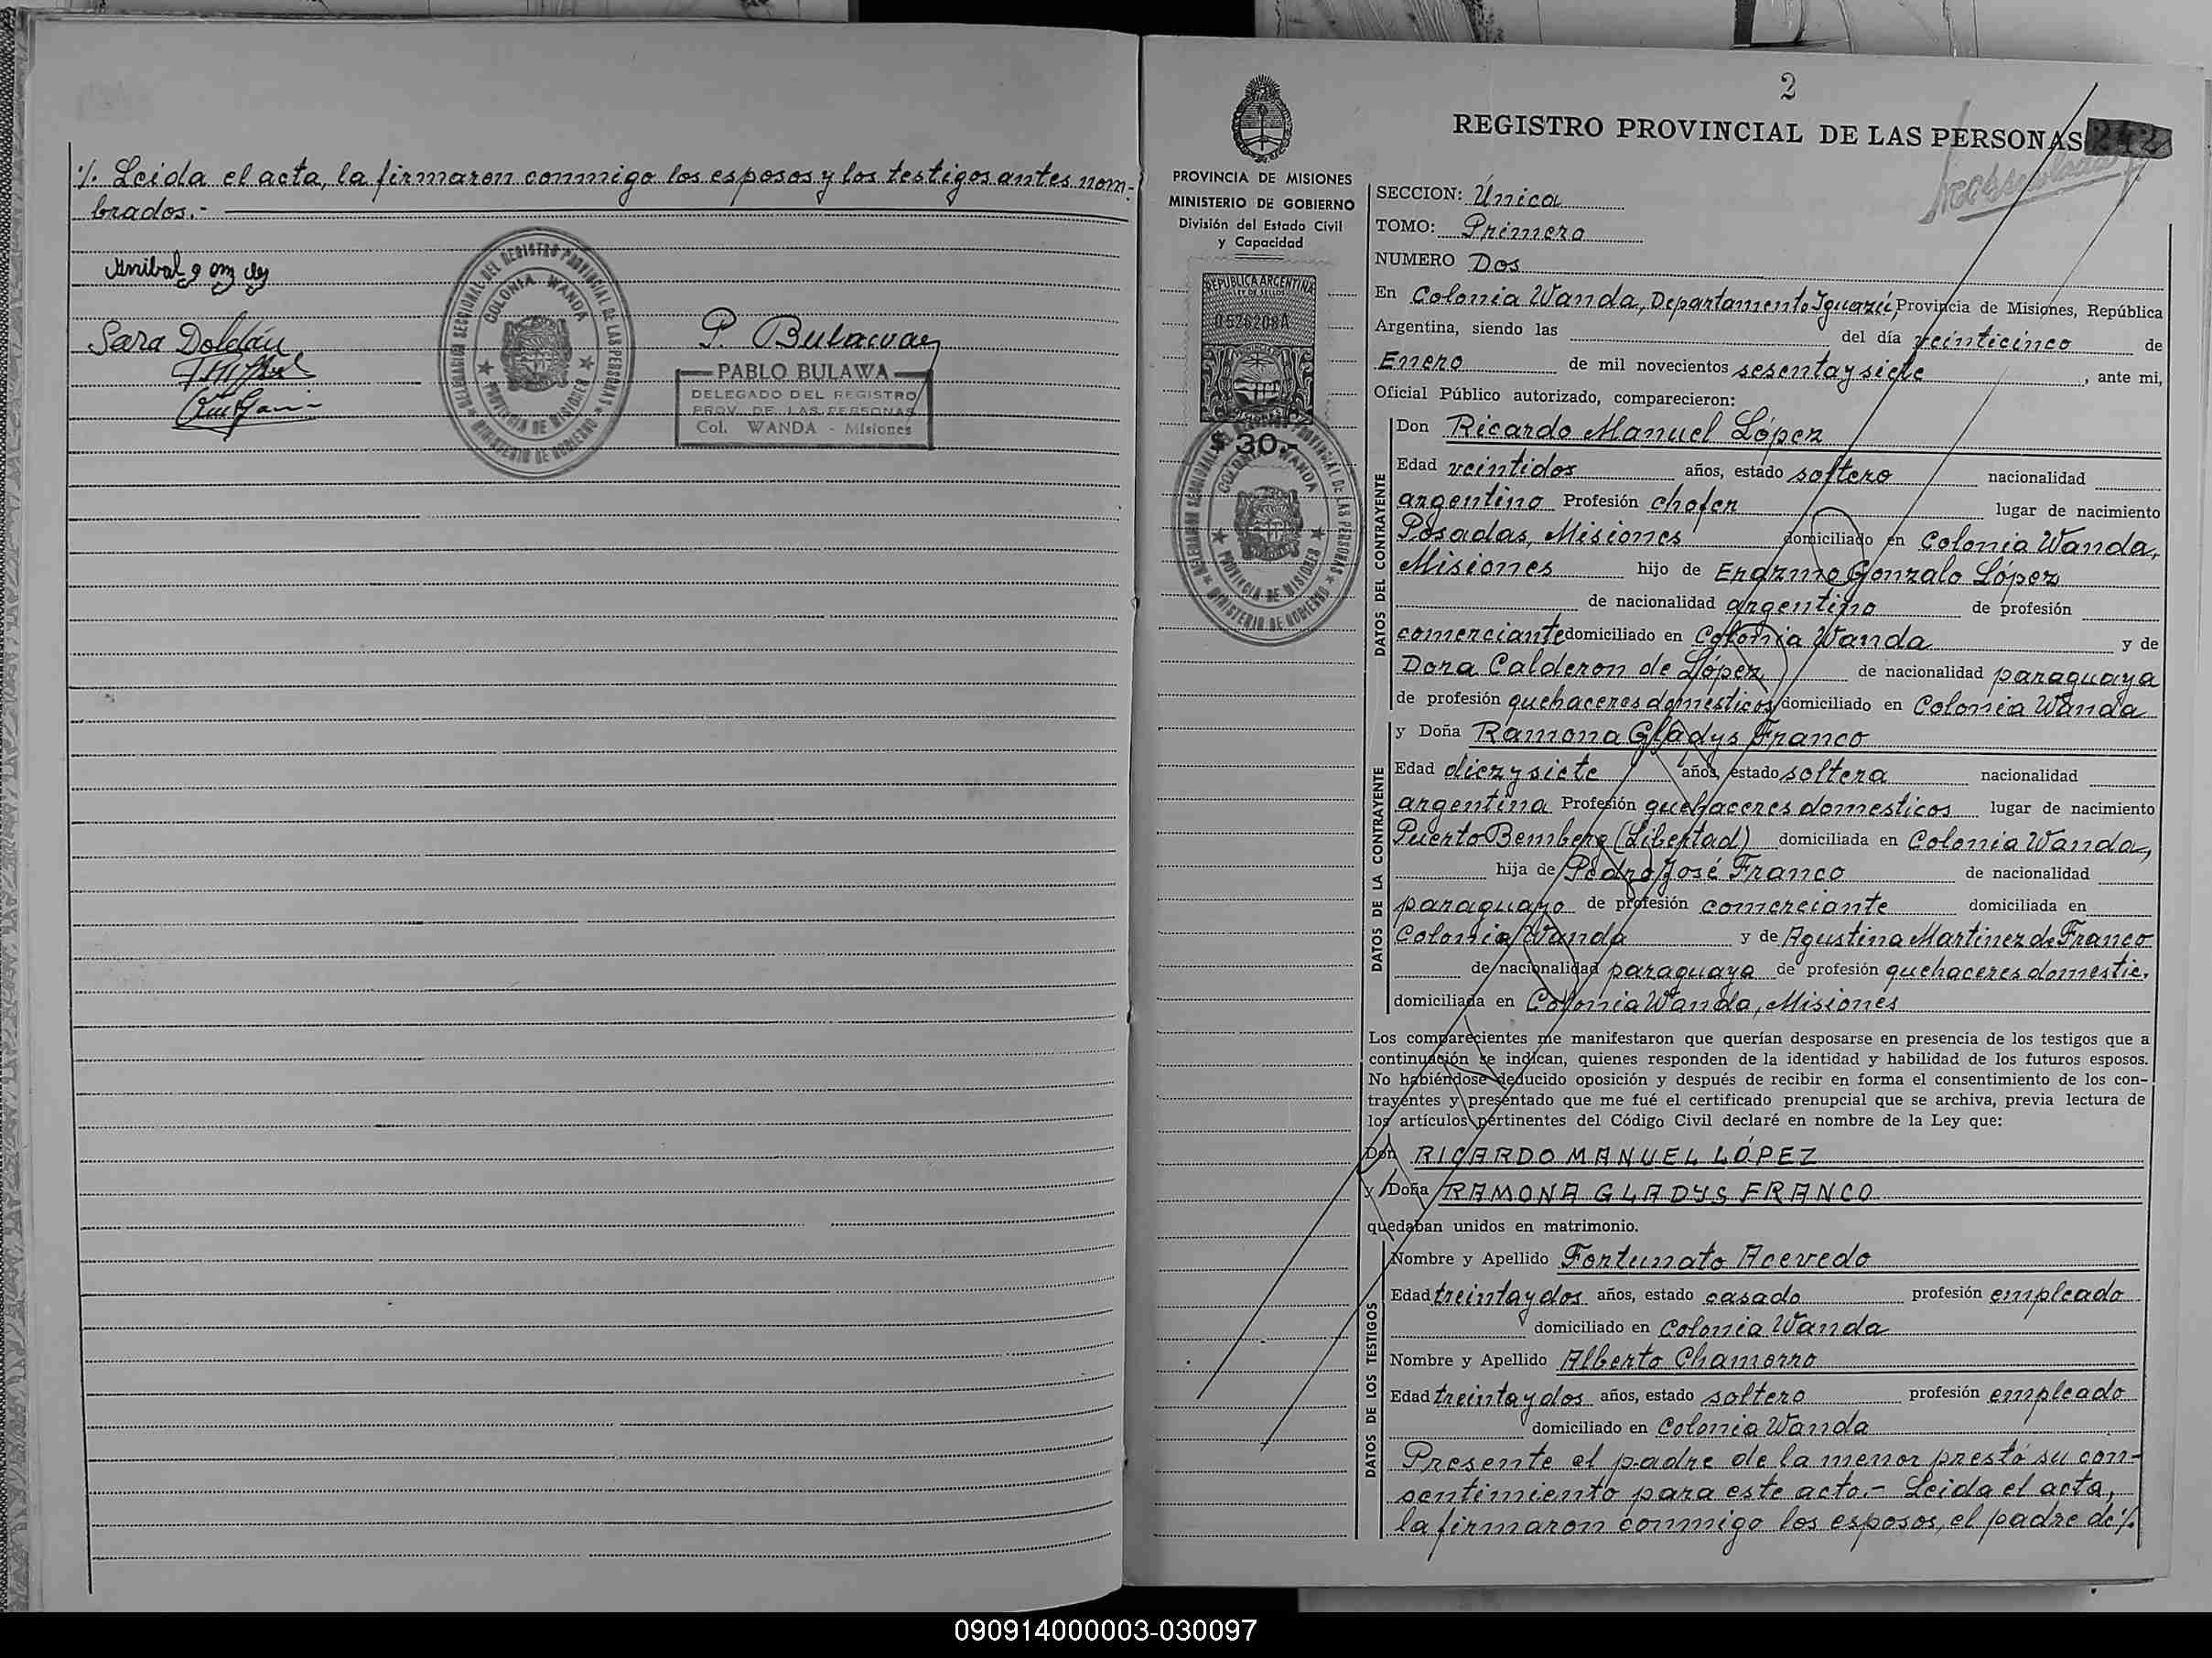 ·/. Leida el acta, la firmaron conmigo los esposos y los testigos antes nom-
brados.-
Anibal
Sara Doldán
DELEGACION SECCIONAL DEL REGISTRO PROVINCIAL DE LAS PERSONAS
COLONIA WANDA
PROVINCIA DE MISIONES
MINISTERIO DE GOBIERNO
P.
PABLO BULAWA
DELEGADO DEL REGISTRO
PROV. DE LAS PERSONAS
Col. WANDA - Misiones
2
REGISTRO PROVINCIAL DE LAS PERSONAS
PROVINCIA DE MISIONES
MINISTERIO DE GOBIERNO
División del Estado Civil
y Capacidad
REPUBLICA ARGENTINA
LEY DE SELLOS
0526208A
$ 30.-
DELEGACION SECCIONAL DEL REGISTRO PROVINCIAL DE LAS PERSONAS
COLONIA WANDA
PROVINCIA DE MISIONES
MINISTERIO DE GOBIERNO
SECCION: Única
TOMO: Primero
NUMERO Dos
En Colonia Wanda, Departamento Iguazú, Provincia de Misiones, República
Argentina, siendo las del día veinticinco de
Enero de mil novecientos sesenta y siete, ante mi,
Oficial Público autorizado, comparecieron:
DATOS DEL CONTRAYENTE
Don Ricardo Manuel López
Edad veintidos años, estado soltero nacionalidad
argentino Profesión chofer lugar de nacimiento
Posadas, Misiones domiciliado en Colonia Wanda,
Misiones hijo de Erazmo Gonzalo López
de nacionalidad argentino de profesión
comerciante domiciliado en Colonia Wanda y de
Dora Calderon de López de nacionalidad paraguaya
de profesión quehaceres domesticos domiciliado en Colonia Wanda
DATOS DE LA CONTRAYENTE
y Doña Ramona Gladys Franco
Edad diez y siete años, estado soltera nacionalidad
argentina Profesión quehaceres domesticos lugar de nacimiento
Puerto Bemberg (Libertad) domiciliada en Colonia Wanda,
hija de Pedro José Franco de nacionalidad
paraguayo de profesión comerciante domiciliada en
Colonia Wanda y de Agustina Martinez de Franco
de nacionalidad paraguaya de profesión quehaceres domestic.
domiciliada en Colonia Wanda, Misiones
Los comparecientes me manifestaron que querían desposarse en presencia de los testigos que a
continuación se indican, quienes responden de la identidad y habilidad de los futuros esposos.
No habiéndose deducido oposición y después de recibir en forma el consentimiento de los con-
trayentes y presentado que me fué el certificado prenupcial que se archiva, previa lectura de
los artículos pertinentes del Código Civil declaré en nombre de la Ley que:
Don RICARDO MANUEL LÓPEZ
y Doña RAMONA GLADYS FRANCO
quedaban unidos en matrimonio.
DATOS DE LOS TESTIGOS
Nombre y Apellido Fortunato Acevedo
Edad treinta y dos años, estado casado profesión empleado
domiciliado en Colonia Wanda
Nombre y Apellido Alberto Chamorro
Edad treinta y dos años, estado soltero profesión empleado
domiciliado en Colonia Wanda
Presente el padre de la menor prestó su con-
sentimiento para este acto.- Leida el acta,
la firmaron conmigo los esposos, el padre de ·/.
090914000003-030097